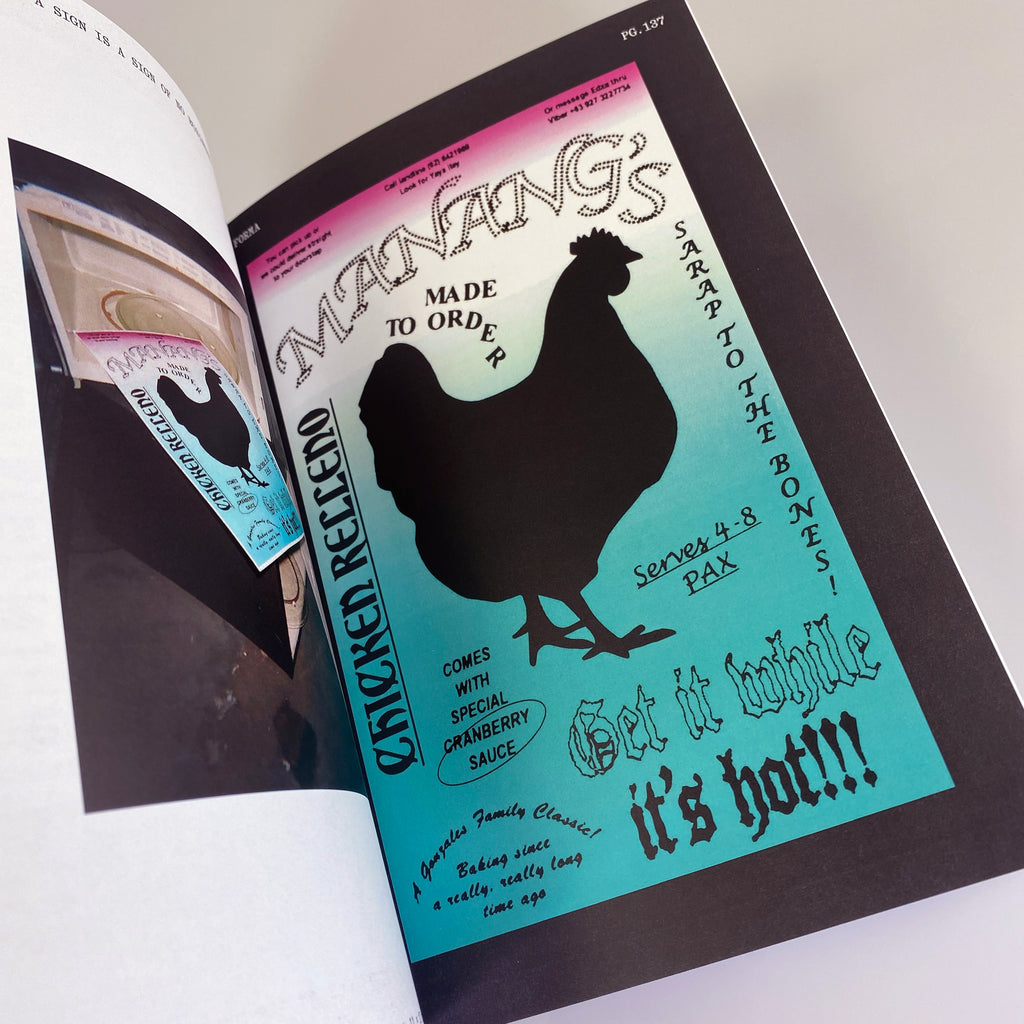 A SIGN IS A SIGN OF NO
PG.137
FORMA
You can pick up or
we could deliver straight
to your doorstep
Call landline (02) 6421989
Look for Yaya Itey
Or message Edza thru
Viber +63 927 3227734
MANANG'S
MADE
TO ORDER
SARAP TO THE BONES!
CHICKEN RELLENO
Serves 4-8
PAX
COMES
WITH
SPECIAL
CRANBERRY
SAUCE
Get it while
it's hot!!!
A Gonzales Family Classic!
Baking since
a really, really long
time ago
MANANG'S
MADE
TO ORDER
CHICKEN RELLENO
COMES
WITH
SPECIAL
CRANBERRY
SAUCE